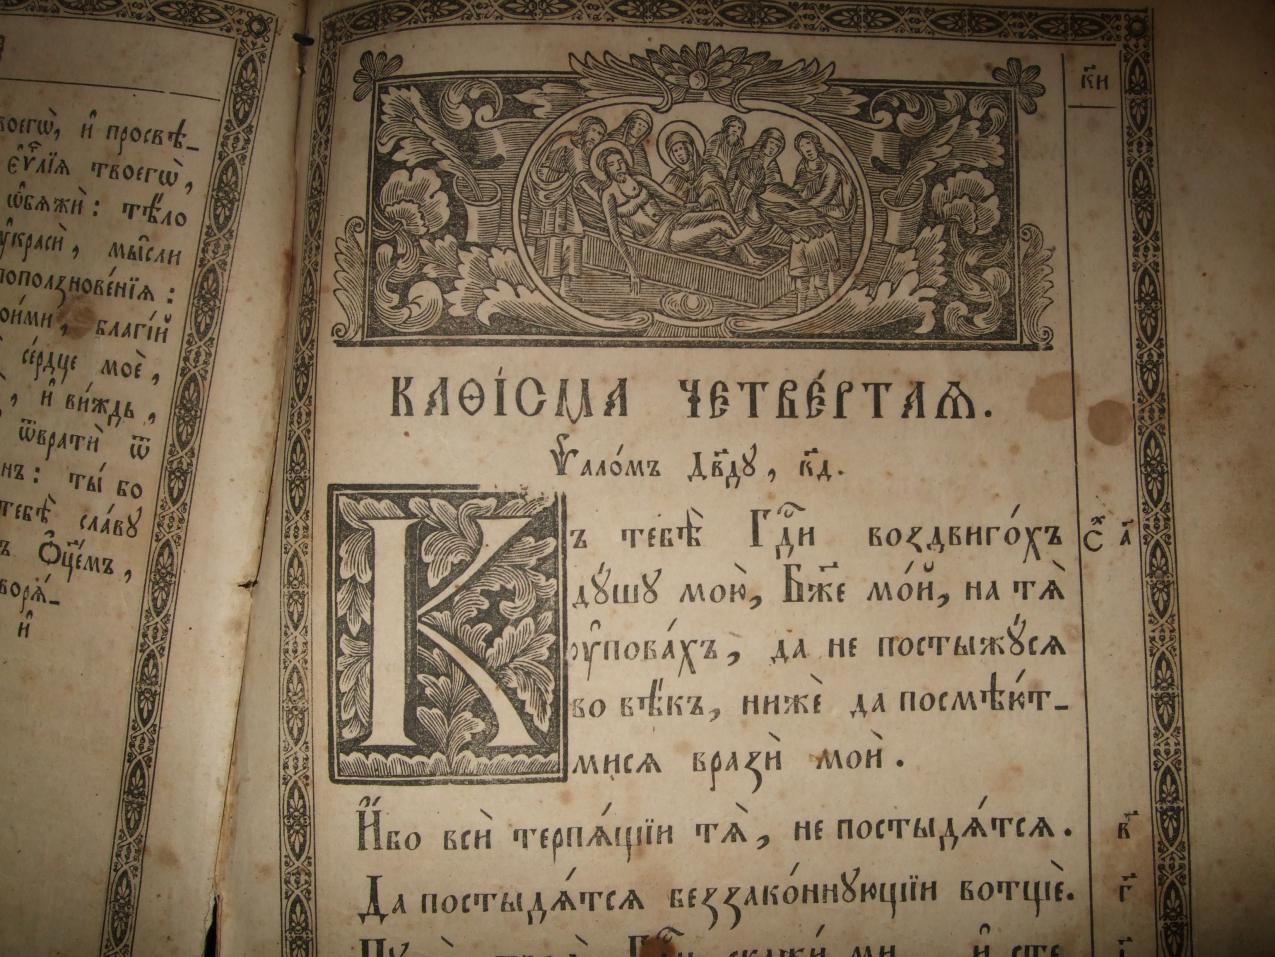 воегѡ̀, и҆ просвѣ_
є҆ѵⷢ҇лїѧ твоегѡ̀,
ѡ҆бѧжѝ: тѣ́ло
ᲂу҆красѝ, мы̑сли
пополз̾нове́нїѧ:
мои́ми, благі́й
се́рдце моѐ,
и҆ ви́ждь,
ѿвратѝ ѿ
ты́ бо
тебѣ̀ сла́ву
Ѻ҆ц҃е́мъ,
творѧ́_
и҆
к҃и
КАѲІ́СМА ЧЕТВЕ́РТАѦ.
Ѱало́мъ дв҃дꙋ, к҃д.
Къ тебѣ̀ Гдⷭ҇и воздвиго́хъ
дꙋ́шꙋ мою̀, Бж҃е мо́й, на тѧ̀
ᲂу҆пова́хъ, да не постыжꙋ́сѧ
во вѣ́къ, нижѐ да посмѣю́т_
мисѧ вразѝ моѝ.
сⷯ а҃
И҆́бо всѝ терпѧ́щїи тѧ̀, не постыдѧ́тсѧ.
в҃
Да постыдѧ́тсѧ беззако́ннꙋющїи вотщѐ.
г҃
скажи́ ми и҆ сте